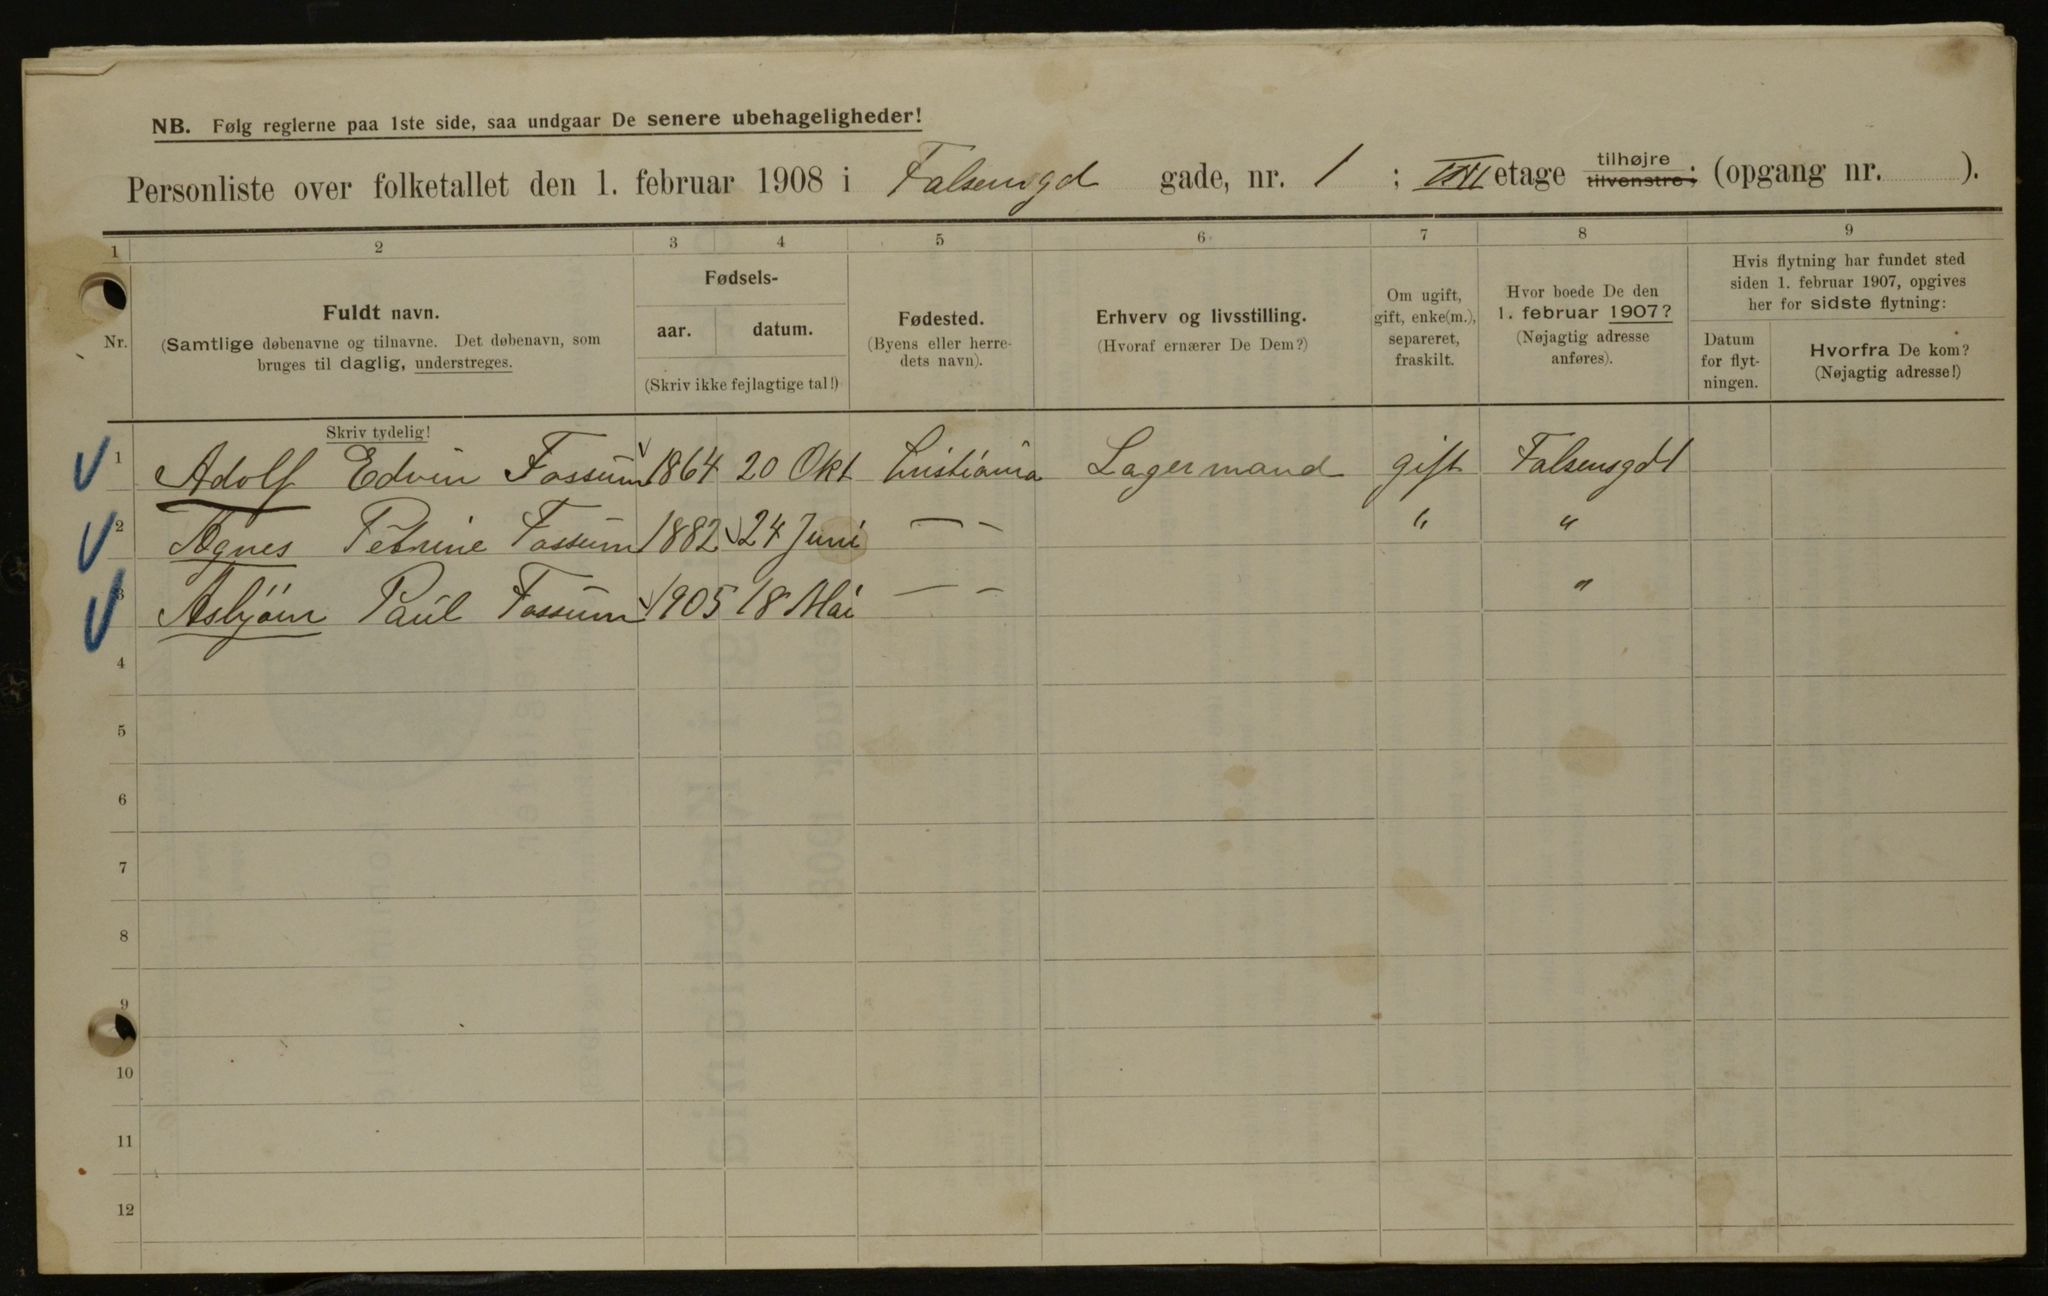 NB. Følg reglerne paa 1ste side, saa undgaar De senere ubehageligheder!
Personliste over folketallet den 1. februar 1908 i Falsensgd gade, nr. 1 ; etage tilhøjre tilvenstre; (opgang nr. ).
1 2 3 4 5 6 7 8 9
Nr.
Fuldt navn.
(Samtlige døbenavne og tilnavne. Det døbenavn, som
bruges til daglig, understreges.
Skriv tydelig!
Fødsels-
aar. datum.
(Skriv ikke fejlagtige tal!)
Fødested.
(Byens eller herre-
dets navn).
Erhverv og livsstilling.
(Hvoraf ernærer De Dem?)
Om ugift,
gift, enke(m.),
separeret,
fraskilt.
Hvor boede De den
1. februar 1907?
(Nøjagtig adresse
anføres).
Hvis flytning har fundet sted
siden 1. februar 1907, opgives
her for sidste flytning:
Datum
for flyt-
ningen.
Hvorfra De kom?
(Nøjagtig adresse!)
1 Adolf Edvin Fossum 1864 20 Okt Cristiania Lagermand gift Falsensgd 1
2 Agnes Petrine Fossum 1882 24 Juni — - " "
3 Asbjørn Paul Fossum 1905 18 Mai — - "
4
5
6
7
8
9
10
11
12